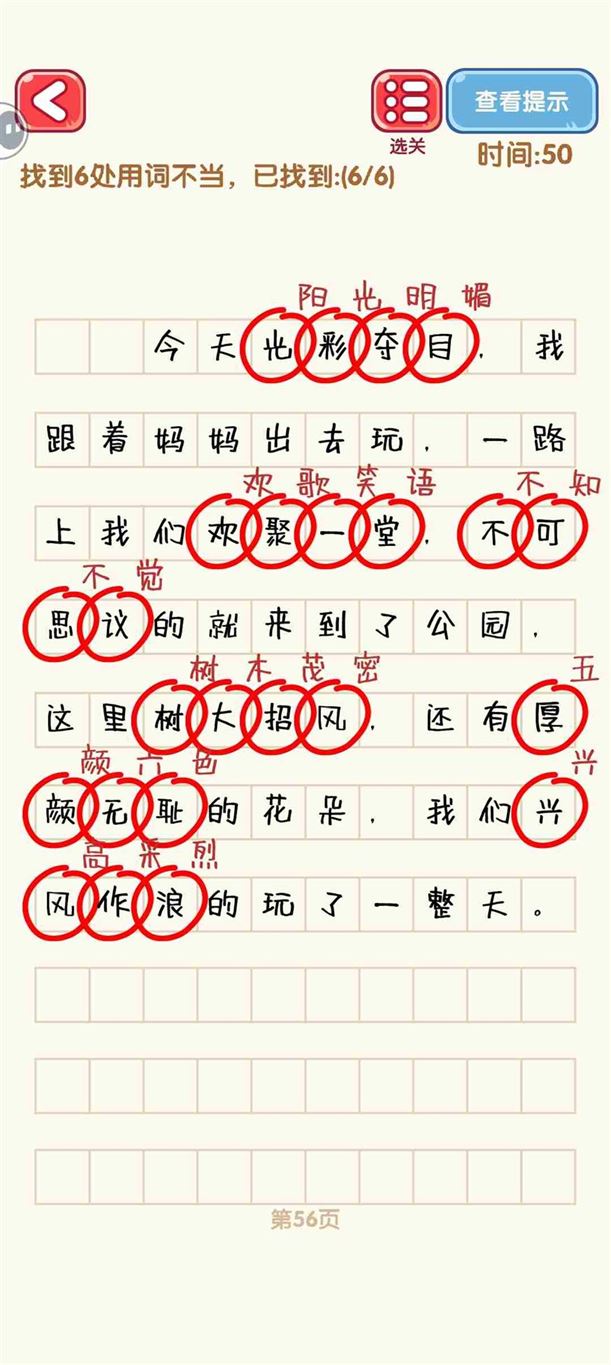 查看提示
选关
时间:50
找到6处用词不当，已找到:(6/6)
阳光明媚
今天光彩夺目，我
跟着妈妈出去玩，一路
欢歌笑语 不知
上我们欢聚一堂，不可
不觉
思议的就来到了公园，
树木茂密 五
这里树大招风，还有厚
颜六色 兴
颜无耻的花朵，我们兴
高采烈
风作浪的玩了一整天。
第56页